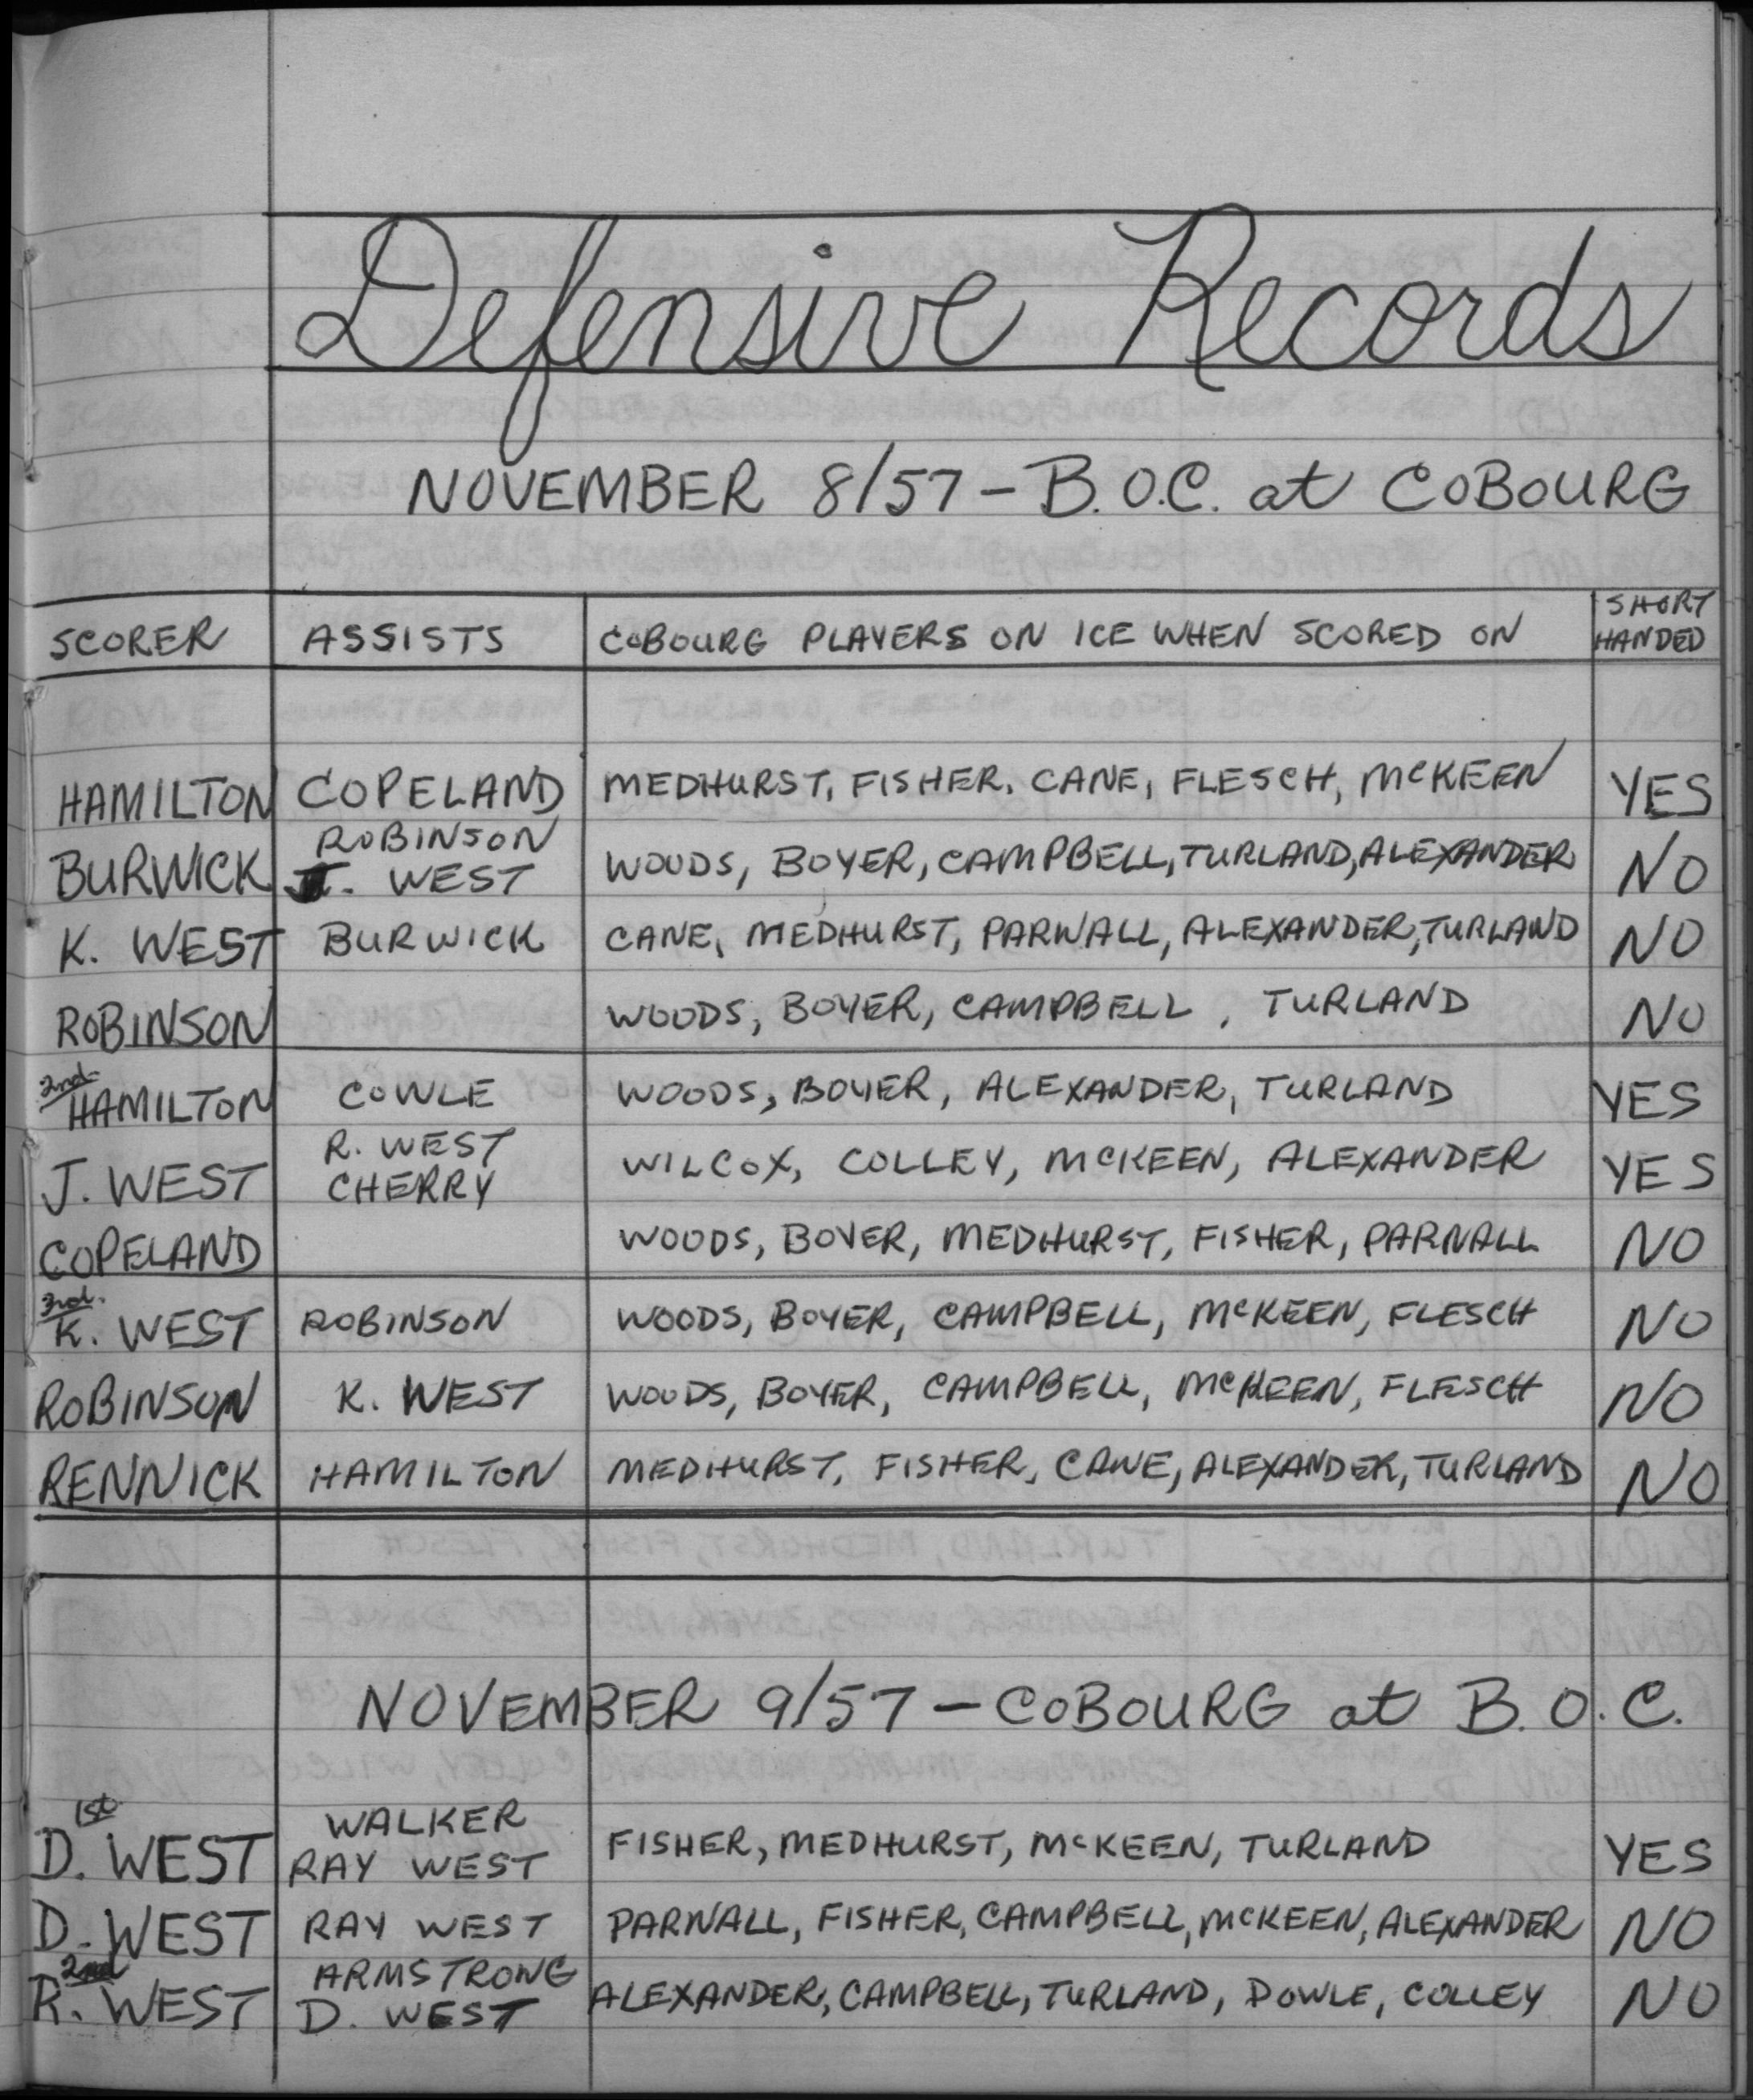 Defensive Records
NOVEMBER 8/57 - B.O.C. at COBOURG
SCORER ASSISTS COBOURG PLAYERS ON ICE WHEN SCORED ON SHORT HANDED
HAMILTON COPELAND MEDHURST, FISHER, CANE, FLESCH, McKEEN YES
ROBINSON
BURWICK J. WEST WOODS, BOYER, CAMPBELL, TURLAND, ALEXANDER NO
K. WEST BURWICK CANE, MEDHURST, PARNALL, ALEXANDER, TURLAND NO
ROBINSON WOODS, BOYER, CAMPBELL, TURLAND NO
2nd.
HAMILTON COWLE WOODS, BOYER, ALEXANDER, TURLAND YES
R. WEST
J. WEST CHERRY WILCOX, COLLEY, McKEEN, ALEXANDER YES
COPELAND WOODS, BOYER, MEDHURST, FISHER, PARNALL NO
3rd.
K. WEST ROBINSON WOODS, BOYER, CAMPBELL, McKEEN, FLESCH NO
ROBINSON K. WEST WOODS, BOYER, CAMPBELL, McKEEN, FLESCH NO
RENNICK HAMILTON MEDHURST, FISHER, CANE, ALEXANDER, TURLAND NO
NOVEMBER 9/57 - COBOURG at B.O.C.
1st. WALKER
D. WEST RAY WEST FISHER, MEDHURST, McKEEN, TURLAND YES
D. WEST RAY WEST PARNALL, FISHER, CAMPBELL, McKEEN, ALEXANDER NO
2nd ARMSTRONG
R. WEST D. WEST ALEXANDER, CAMPBELL, TURLAND, DOWLE, COLLEY NO